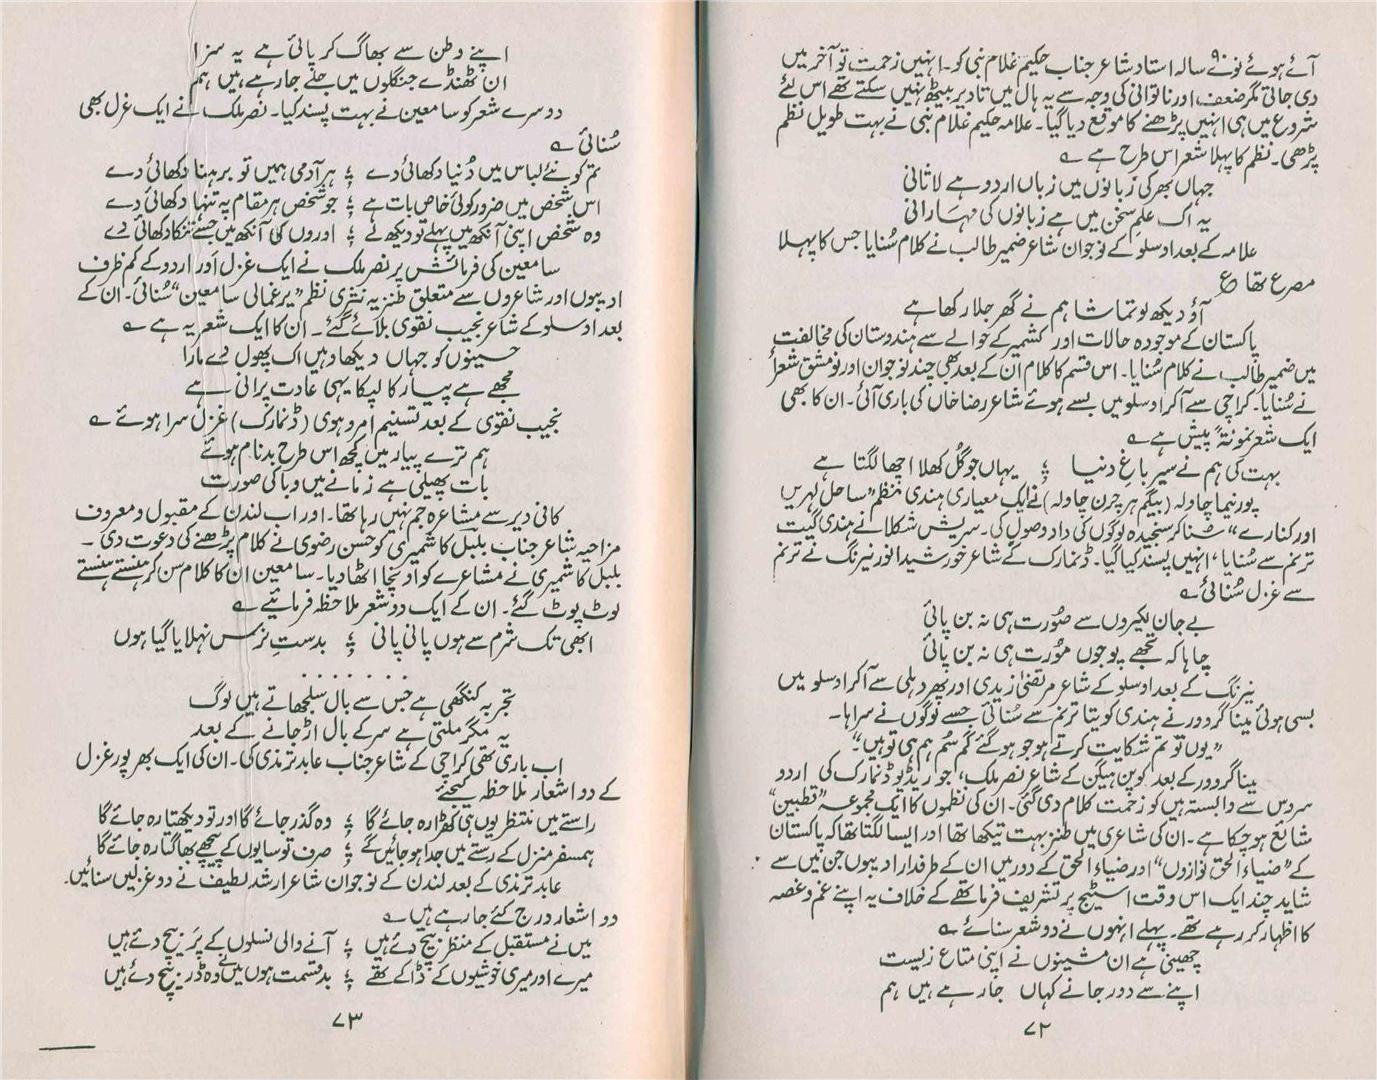 آئے ہوئے نوّے ۹۰ سالہ استاد شاعر جناب حکیم غلام نبی کو۔ انہیں زحمت تو آخر میں
دی جاتی مگر ضعف اور ناتوانی کی وجہ سے یہ ہال میں تادیر بیٹھ نہیں سکتے تھے اس لئے
شروع میں ہی انہیں پڑھنے کا موقع دیا گیا۔ علامہ حکیم غلام نبی نے بہت طویل نظم
پڑھی۔ نظم کا پہلا شعر اس طرح ہے ؎
جہاں بھر کی زبانوں میں زباں اردو ہے لاثانی
یہ اک علمِ سخن میں ہے زبانوں کی مہارانی
علامہ کے بعد اوسلو کے نوجوان شاعر ضمیر طالب نے کلام سُنایا جس کا پہلا
مصرع تھا ع
آؤ دیکھ لو تماشا ہم نے گھر جلا رکھا ہے
پاکستان کے موجودہ حالات اور کشمیر کے حوالے سے ہندوستان کی مخالفت
میں ضمیر طالب نے کلام سُنایا۔ اس قسم کا کلام ان کے بعد بھی چند نوجوان اور نومشق شعرأ
نے سُنایا۔ کراچی سے آکر اوسلو میں بسے ہوئے شاعر رضا خاں کی باری آئی۔ ان کا بھی
ایک شعر نمونۃً پیش ہے ؎
بہت کی ہم نے سیر باغِ دنیا ؛ یہاں جو گُل کھلا اچھا لگتا ہے
پورنیما چاولہ (بیگم ہر چرن چاولہ) نے ایک معیاری ہندی نظم "ساحل لہریں
اور کنارے" سُنا کر سنجیدہ لوگوں کی داد وصول کی۔ سریش شکلا نے ہندی گیت
ترنم سے سُنایا، انہیں پسند کیا گیا۔ ڈنمارک کے شاعر خورشید انور نیرنگ نے ترنم
سے غزل سُنائی ؎
بے جان لکیروں سے صُورت ہی نہ بن پائی
چاہا کہ تجھے پوجوں مُورت ہی نہ بن پائی
نیرنگ کے بعد اوسلو کے شاعر مرتضیٰ زیدی اور پھر دہلی سے آکر اوسلو میں
بسی ہوئی مینا گروور نے ہندی کویتا ترنم سے سُنائی جسے لوگوں نے سراہا۔
"یوں تو تم شکایت کرتے ہو جو ہو گئے گُم سُم ہم ہی تو ہیں"
مینا گروور کے بعد کوپن ہیگن کے شاعر نصر ملک، جو ریڈیو ڈنمارک کی اردو
سروس سے وابستہ ہیں کو زحمت کلام دی گئی۔ ان کی نظموں کا ایک مجموعہ "قطبین"
شائع ہو چکا ہے۔ ان کی شاعری میں طنز بہت تیکھا تھا اور ایسا لگتا تھا کہ پاکستان
کے "ضیاء الحق نوازوں" اور ضیاء الحق کے دور میں ان کے طرفدار ادیبوں جن میں سے
شاید چند ایک اس وقت اسٹیج پر تشریف فرما تھے کے خلاف یہ اپنے غم و غصہ
کا اظہار کر رہے تھے۔ پہلے انہوں نے دو شعر سنائے ؎
چھینی ہے ان مشینوں نے اپنی متاع زیست
اپنے سے دور جانے کہاں جا رہے ہیں ہم
۷۲
اپنے وطن سے بھاگ کر پائی ہے یہ سزا
ان ٹھنڈے جنگلوں میں جلے جا رہے ہیں ہم
دوسرے شعر کو سامعین نے بہت پسند کیا۔ نصر ملک نے ایک غزل بھی
سُنائی ؎
تم کو نئے لباس میں دُنیا دکھائی دے ؛ ہر آدمی ہمیں تو برہنا دکھائی دے
اس شخص میں ضرور کوئی خاص بات ہے ؛ جو شخص ہر مقام پہ تنہا دکھائی دے
وہ شخص اپنی آنکھ میں پہلے تو دیکھ لے ؛ اوروں کی آنکھ میں جسے تنکا دکھائی دے
سامعین کی فرمائش پر نصر ملک نے ایک غزل اور اردو کے کم ظرف
ادیبوں اور شاعروں سے متعلق طنزیہ نثری نظم "یرغمالی سامعین" سُنائی۔ ان کے
بعد اوسلو کے شاعر نجیب نقوی بلائے گئے۔ ان کا ایک شعر یہ ہے ؎
حسینوں کو جہاں دیکھا وہیں اک پھول دے مارا
مجھے ہے پیار کا لپکا یہی عادت پرانی ہے
نجیب نقوی کے بعد تسنیم امروہوی (ڈنمارک) غزل سرا ہوئے ؎
ہم ترے پیار میں کچھ اس طرح بدنام ہوئے
بات پھیلی ہے زمانے میں وبا کی صورت
کافی دیر سے مشاعرہ جم نہیں رہا تھا۔ اور اب لندن کے مقبول و معروف
مزاحیہ شاعر جناب بلبل کاشمیری کو حسن رضوی نے کلام پڑھنے کی دعوت دی۔
بلبل کاشمیری نے مشاعرے کو اونچا اٹھا دیا۔ سامعین ان کا کلام سن کر ہنستے ہنستے
لوٹ پوٹ گئے۔ ان کے ایک دو شعر ملاحظہ فرمائیے ؎
ابھی تک شرم سے ہوں پانی پانی ؛ بدستِ نرس نہلایا گیا ہوں
. . . . . . .
تجربہ کنگھی ہے جس سے بال سلجھاتے ہیں لوگ
یہ مگر ملتی ہے سر کے بال اڑ جانے کے بعد
اب باری تھی کراچی کے شاعر جناب عابد ترمذی کی۔ ان کی ایک بھرپور غزل
کے دو اشعار ملاحظہ کیجئے
راستے میں منتظر یوں ہی کھڑا رہ جائے گا ؛ وہ گذر جائے گا اور تو دیکھتا رہ جائے گا
ہمسفر منزل کے رستے میں جدا ہو جائیں گے ؛ صرف تو سایوں کے پیچھے بھاگتا رہ جائے گا
عابد ترمذی کے بعد لندن کے نوجوان شاعر ارشد لطیف نے دو غزلیں سنائیں۔
دو اشعار درج کئے جا رہے ہیں ؎
میں نے مستقبل کے منظر بیچ دئے ہیں ؛ آنے والی نسلوں کے پَر بیچ دئے ہیں
میرے اور میری خوشیوں کے ڈاکے تھے ؛ بدقسمت ہوں میں نے وہ ڈر بیچ دئے ہیں
۷۳